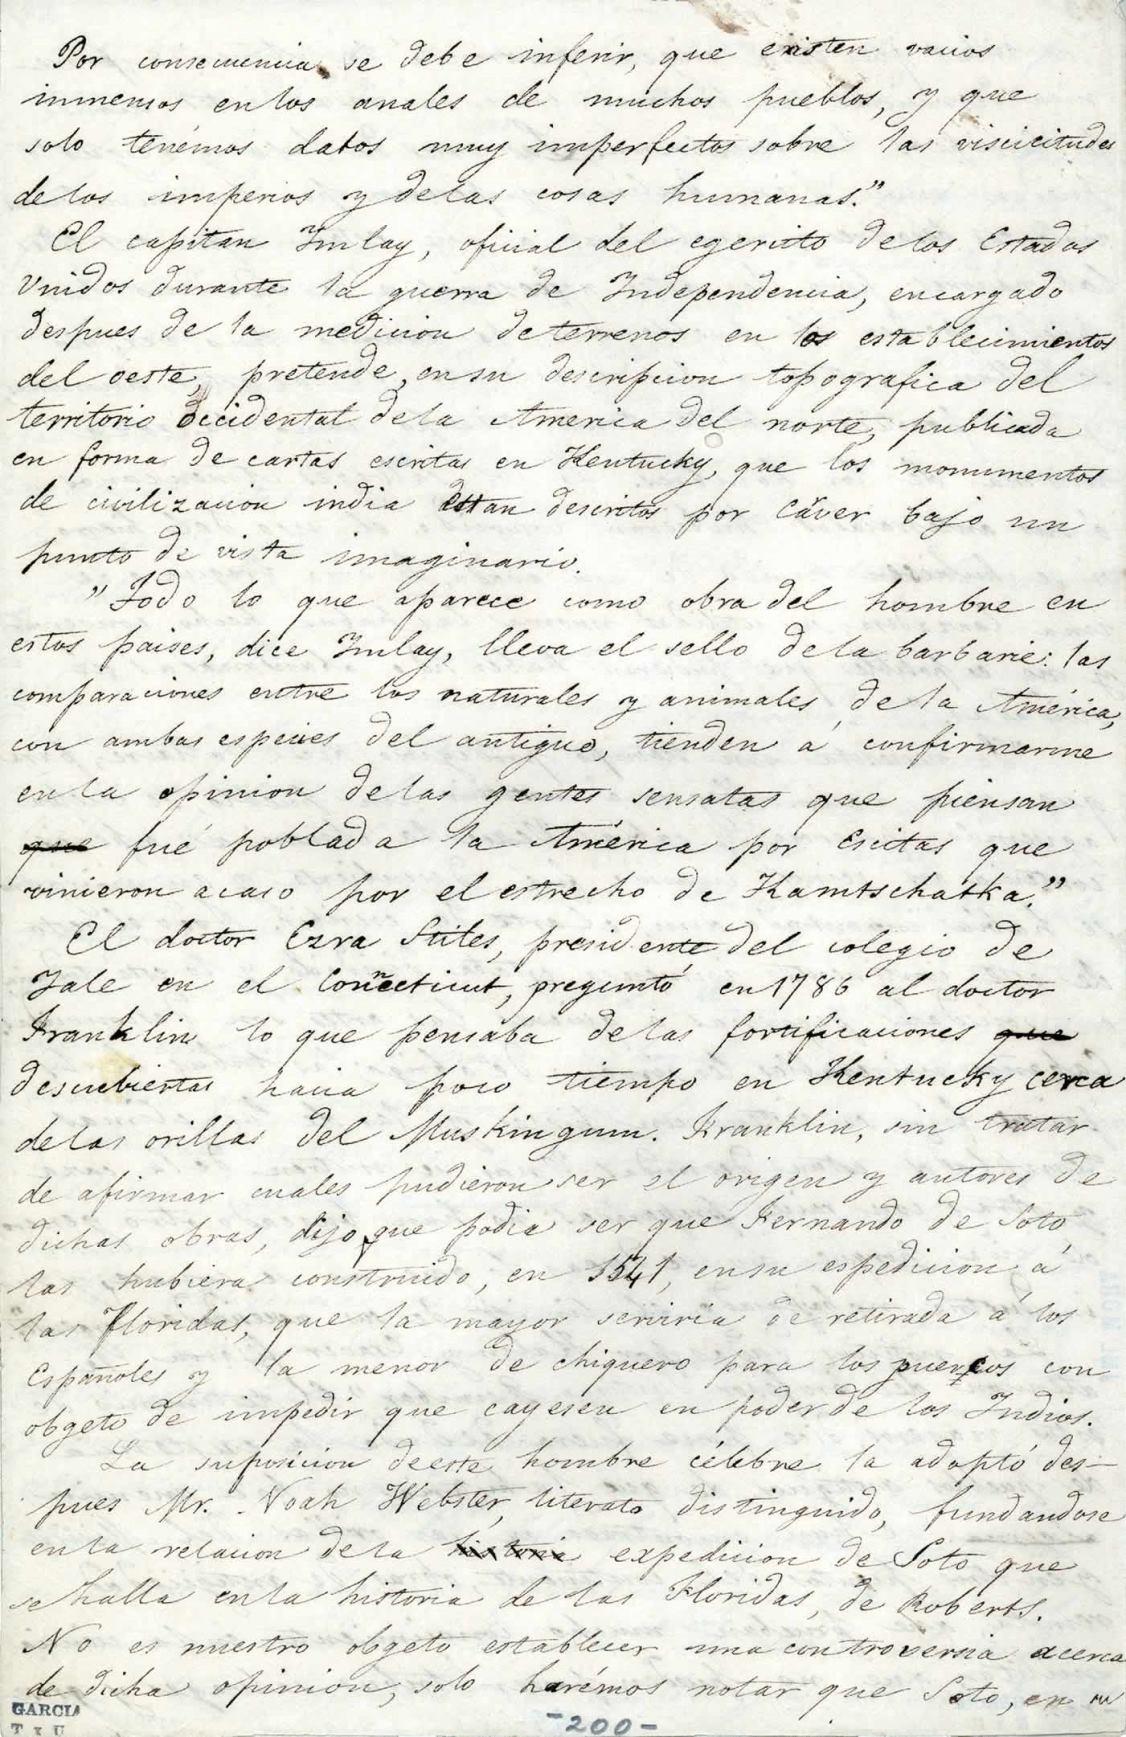 Por consecuencia se debe inferir, que existen vacios
inmensos en los anales de muchos pueblos, y que
solo tenémos datos muy imperfectos sobre las viscicitudes
de los imperios y delas cosas humanas."
El capitan Imlay, oficial del egercito de los Estados
Unidos durante la guerra de Independencia, encargado
despues de la medicion de terrenos en los establecimientos
del oeste, pretende, en su descripcion topografica del
territorio occidental de la America del norte, publicada
en forma de cartas escritas en Kentucky, que los monumentos
de civilizacion india estan descritos por Cäver bajo un
punto de vista imaginario.
"Todo lo que aparece como obra del hombre en
estos paises, dice Imlay, lleva el sello de la barbarie: las
comparaciones entre los naturales y animales de la América,
con ambas especies del antiguo, tienden á confirmarme
en la opinion de las gentes sensatas que piensan
que fué poblada la América por Escitas que
vinieron acaso por el estrecho de Kamtschatka."
El doctor Ezra Stiles, presidente del colegio de
Yale en el Connecticut, preguntó en 1786 al doctor
Franklin lo que pensaba de las fortificaciones que
descubiertas hacia poco tiempo en Kentucky cerca
de las orillas del Muskingum. Franklin, sin tratar
de afirmar cuales pudieron ser el origen y autores de
dichas obras, dijo que podia ser que Fernando de Soto
las hubiera construido, en 1541, en su espedicion á
las Floridas, que la mayor serviría de retirada á los
Españoles y la menor de chiquero para los puercos con
obgeto de impedir que cayesen en poder de los Indios.
La suposicion de este hombre célebre la adoptó des-
pues Mr. Noah Webster, literato distinguido, fundandose
en la relacion de la historia expedicion de Soto que
se halla en la historia de las Floridas, de Roberts.
No es nuestro obgeto establecer una controversia acerca
de dicha opinion, solo harémos notar que Soto, en su
GARCIA
T x U
-200-